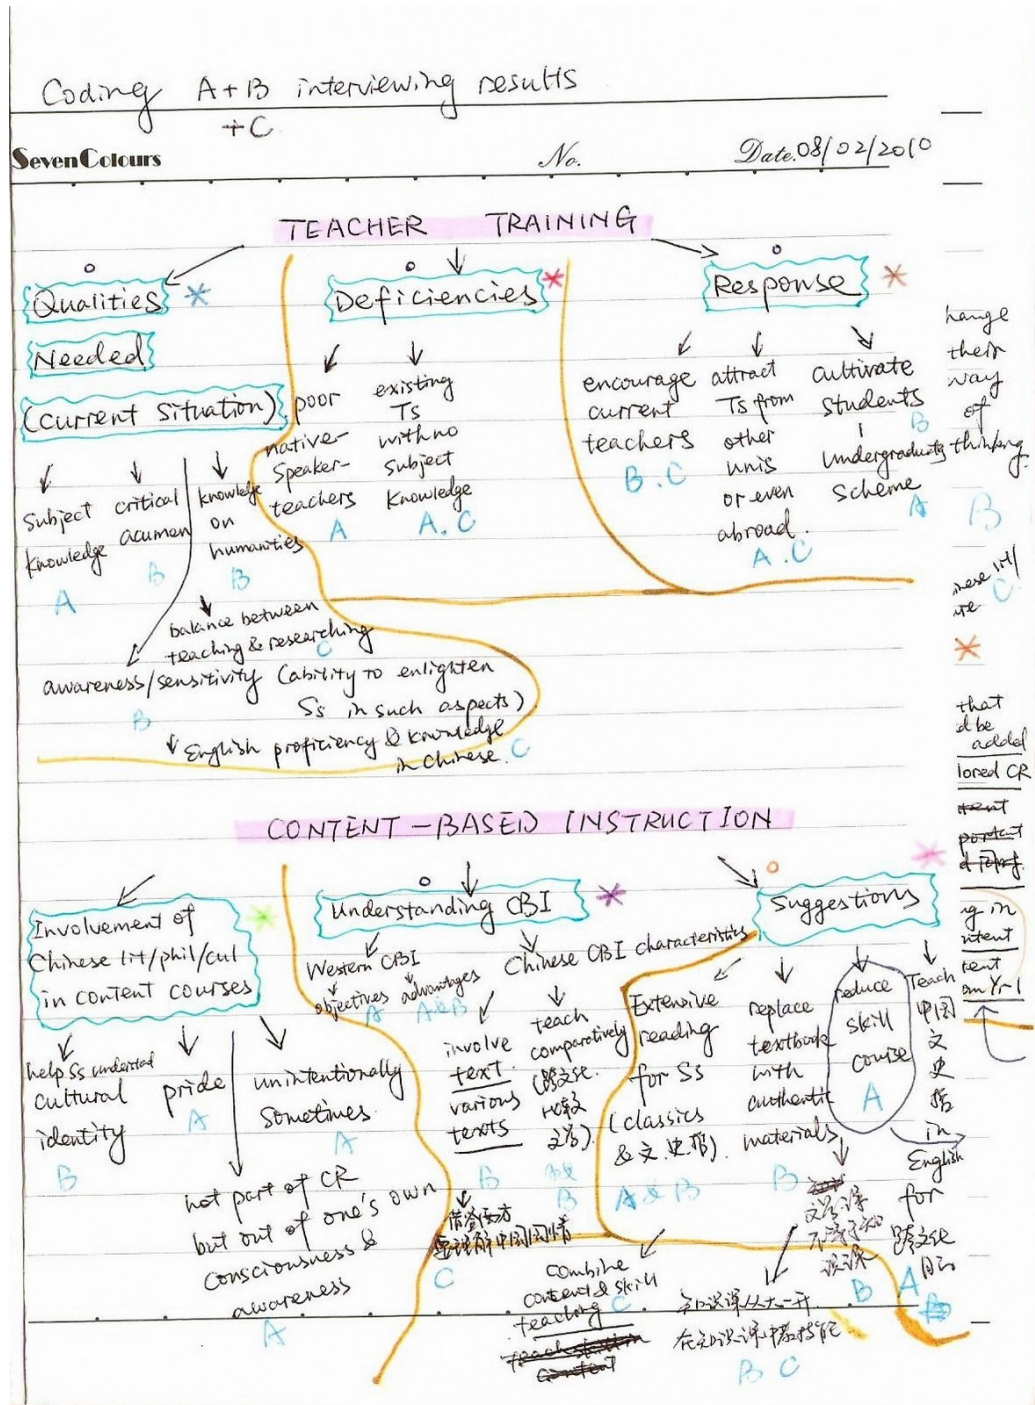 Coding A+B interviewing results
+C
SevenColours
No.
Date. 08/02/2010
TEACHER TRAINING
Qualities
Needed
(current situation)
Subject
knowledge
A
critical
acumen
B
knowledge
on
humanities
B
balance between
teaching & researching
C
awareness/sensitivity (ability to enlighten
Ss in such aspects)
B
English proficiency & knowledge
in Chinese.
C
Deficiencies
poor
native-
speaker-
teachers
A
existing
Ts
with no
subject
knowledge
A. C
Response
encourage
current
teachers
B. C
attract
Ts from
other
unis
or even
abroad.
A. C
cultivate
students
B
undergraduate
scheme
A
hange
their
way
of
thinking.
B
C
that
d be
added
lored CR
ng in
ntent
tent
om Yr 1
CONTENT-BASED INSTRUCTION
Involvement of
Chinese lit/phil/cul
in content courses
help Ss understand
cultural
identity
B
pride
A
unintentionally
sometimes.
A
not part of CR
but out of one's own
consciousness &
awareness
A
Understanding CBI
Western CBI
objectives
A
advantages
A&B
Chinese CBI characteristics
involve
text.
various
texts
B
teach
comparatively
(跨文化
比较
文学).
B
C
Suggestions
Extensive
reading
for Ss
(classics
& 文.史.哲).
A & B
replace
textbook
with
authentic
materials
B
reduce
skill
course
A
Teach
中国
文
史
哲
in
English
for
跨文化
A
文学课
B
combine
content & skill
teaching
C
B C